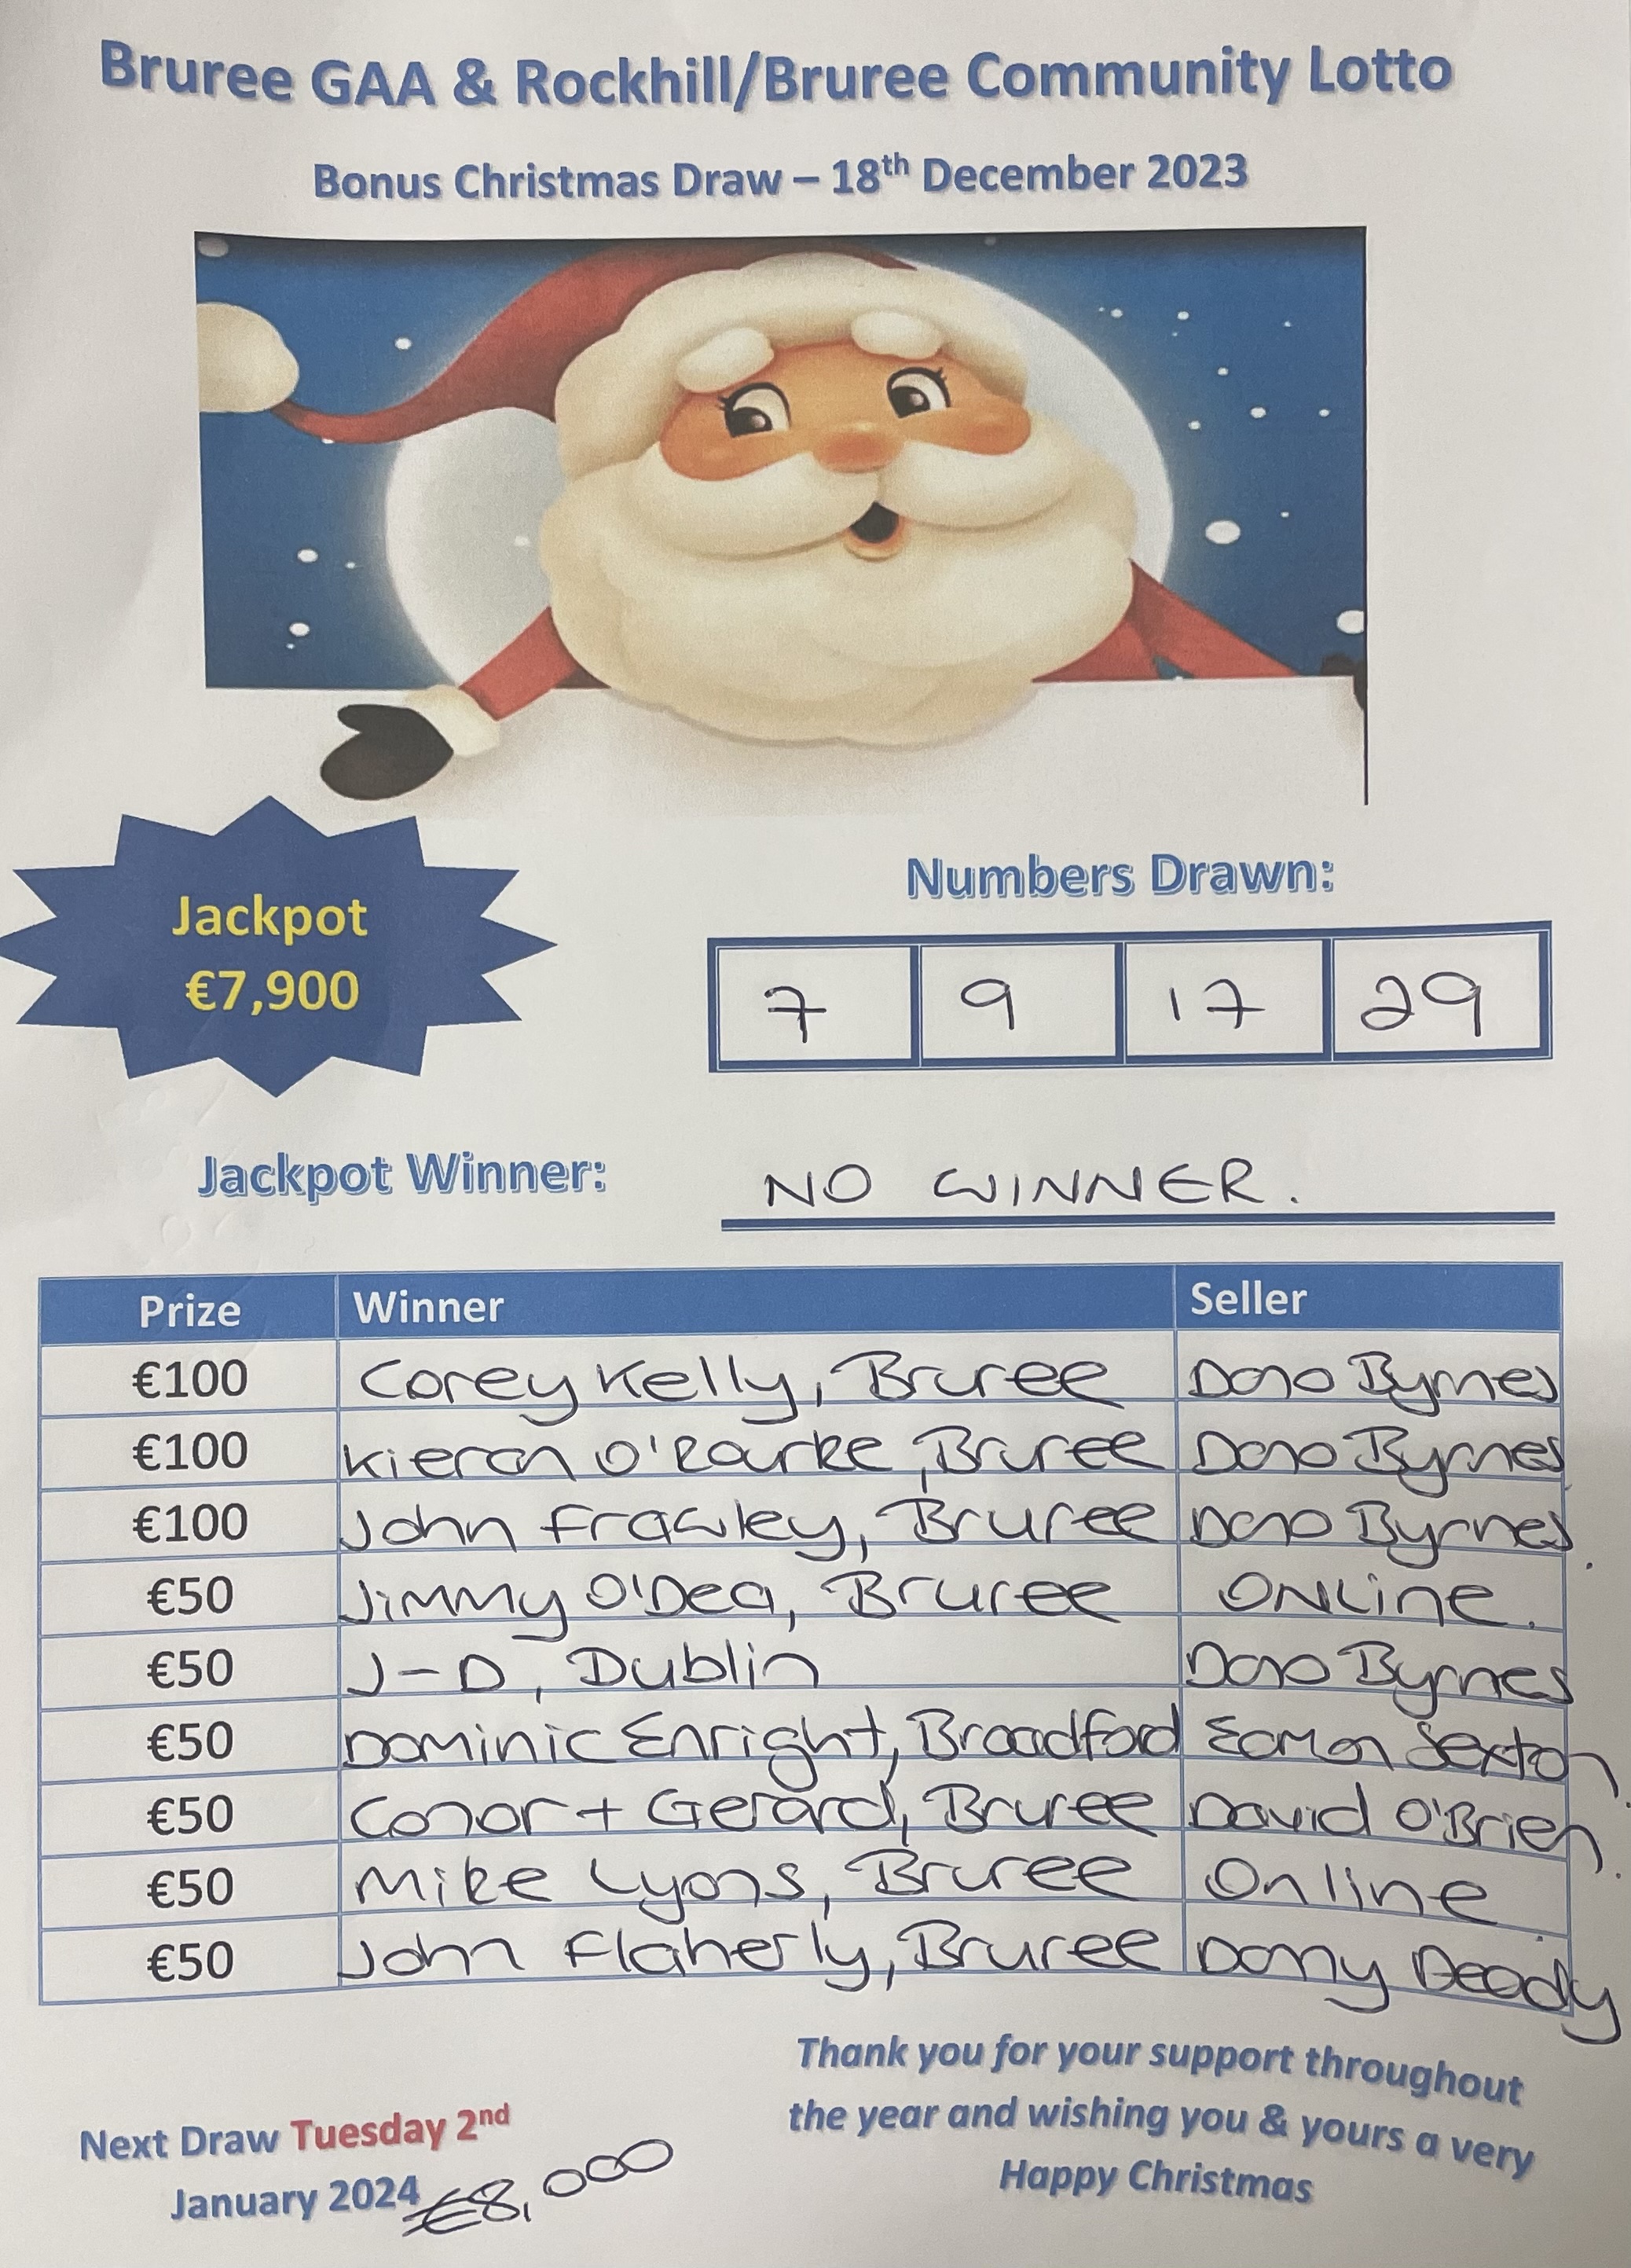 Bruree GAA & Rockhill/Bruree Community Lotto
Bonus Christmas Draw – 18th December 2023
Jackpot
€7,900
Numbers Drawn:
7 9 17 29
Jackpot Winner: NO WINNER.
Prize Winner Seller
€100 Corey Kelly, Bruree Dano Byrnes
€100 Kieran O'Rourke, Bruree Dano Byrnes
€100 John Frawley, Bruree Dano Byrnes.
€50 Jimmy O'Dea, Bruree ONLine.
€50 J-D, Dublin Dano Byrnes
€50 Dominic Enright, Broadford Eamon Sexton.
€50 Conor + Gerard, Bruree David O'Brien.
€50 Mike Lyons, Bruree Online
€50 John Flaherly, Bruree Deady
Thank you for your support throughout
the year and wishing you & yours a very
Happy Christmas
Next Draw Tuesday 2nd
January 2024 €8,000